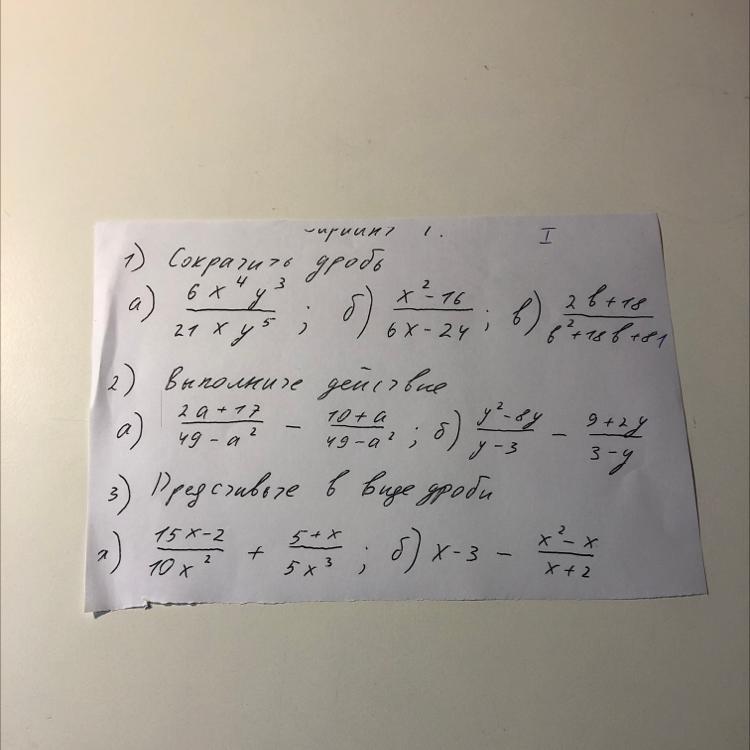 Вариант 1. I
1) Сократить дробь
а) 6x⁴y³ / 21xy⁵ ; б) x²-16 / 6x-24 ; в) 2b+18 / b²+18b+81
2) Выполните действие
а) 2a+17 / 49-a² - 10+a / 49-a² ; б) y²-8y / y-3 - 9+2y / 3-y
3) Предствьте в виде дроби
а) 15x-2 / 10x² + 5+x / 5x³ ; б) x-3 - x²-x / x+2